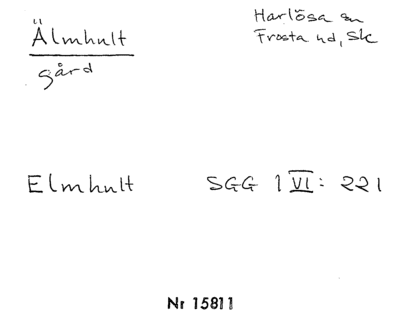 Älmhult
gård
Harlösa sn
Frosta hd, Sk
Elmhult SGG 1 VI: 221
Nr 15811